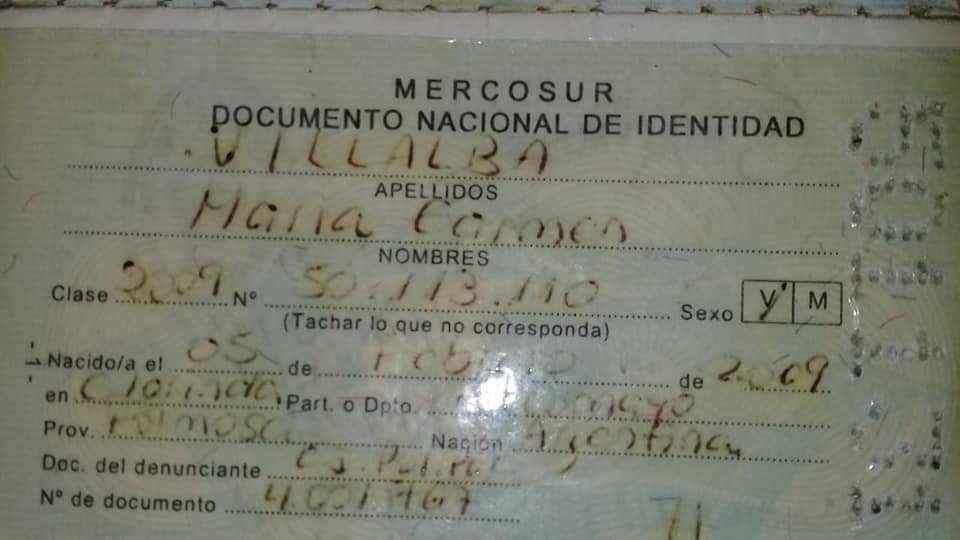 MERCOSUR
DOCUMENTO NACIONAL DE IDENTIDAD
VILLALBA
APELLIDOS
Maria Carmen
NOMBRES
Clase 2009 Nº 50.113.110 Sexo V M
(Tachar lo que no corresponda)
Nacido/a el 05 de Febrero de 2009
en Clorinda Part. o Dpto.
Prov. Formosa Nación Argentina
Doc. del denunciante
Nº de documento
71